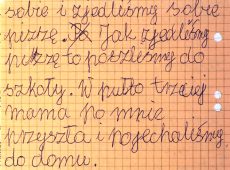 sobie i zjedliśmy sobie
pizzę. Jak zjedliśmy
pizzę to poszliśmy do
szkoły. W pułto trzciej
mama po mnie
przyszła i pojechaliśmy
do domu.